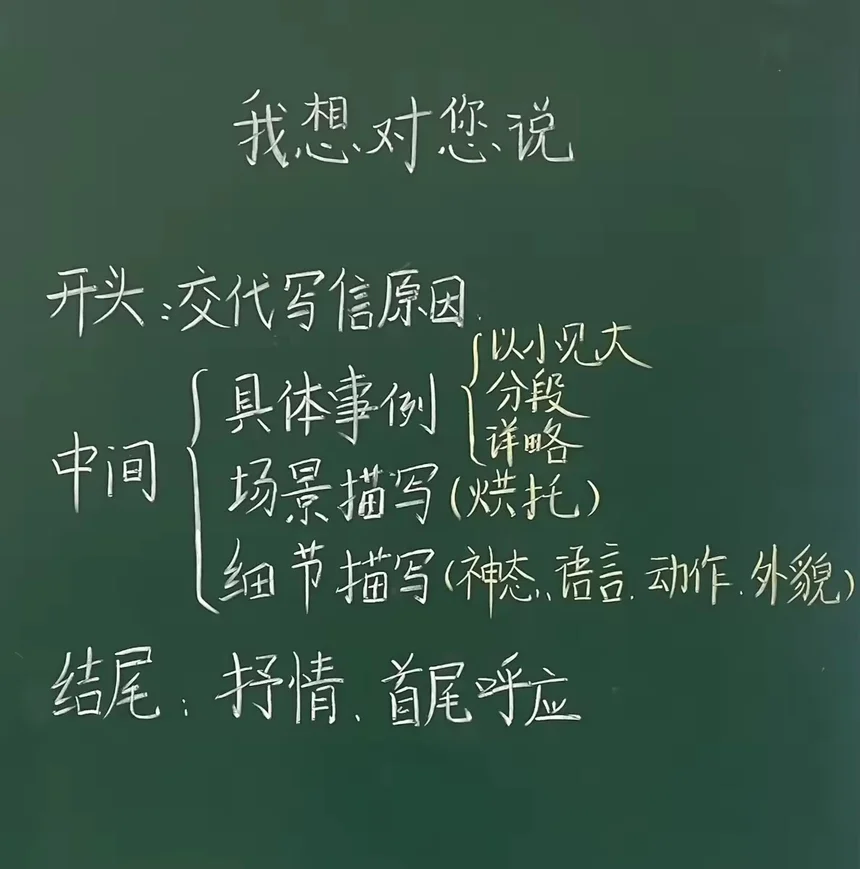 我想对您说
开头:交代写信原因.
中间
具体事例
以小见大
分段
详略
场景描写(烘托)
细节描写(神态、语言.动作.外貌)
结尾:抒情、首尾呼应